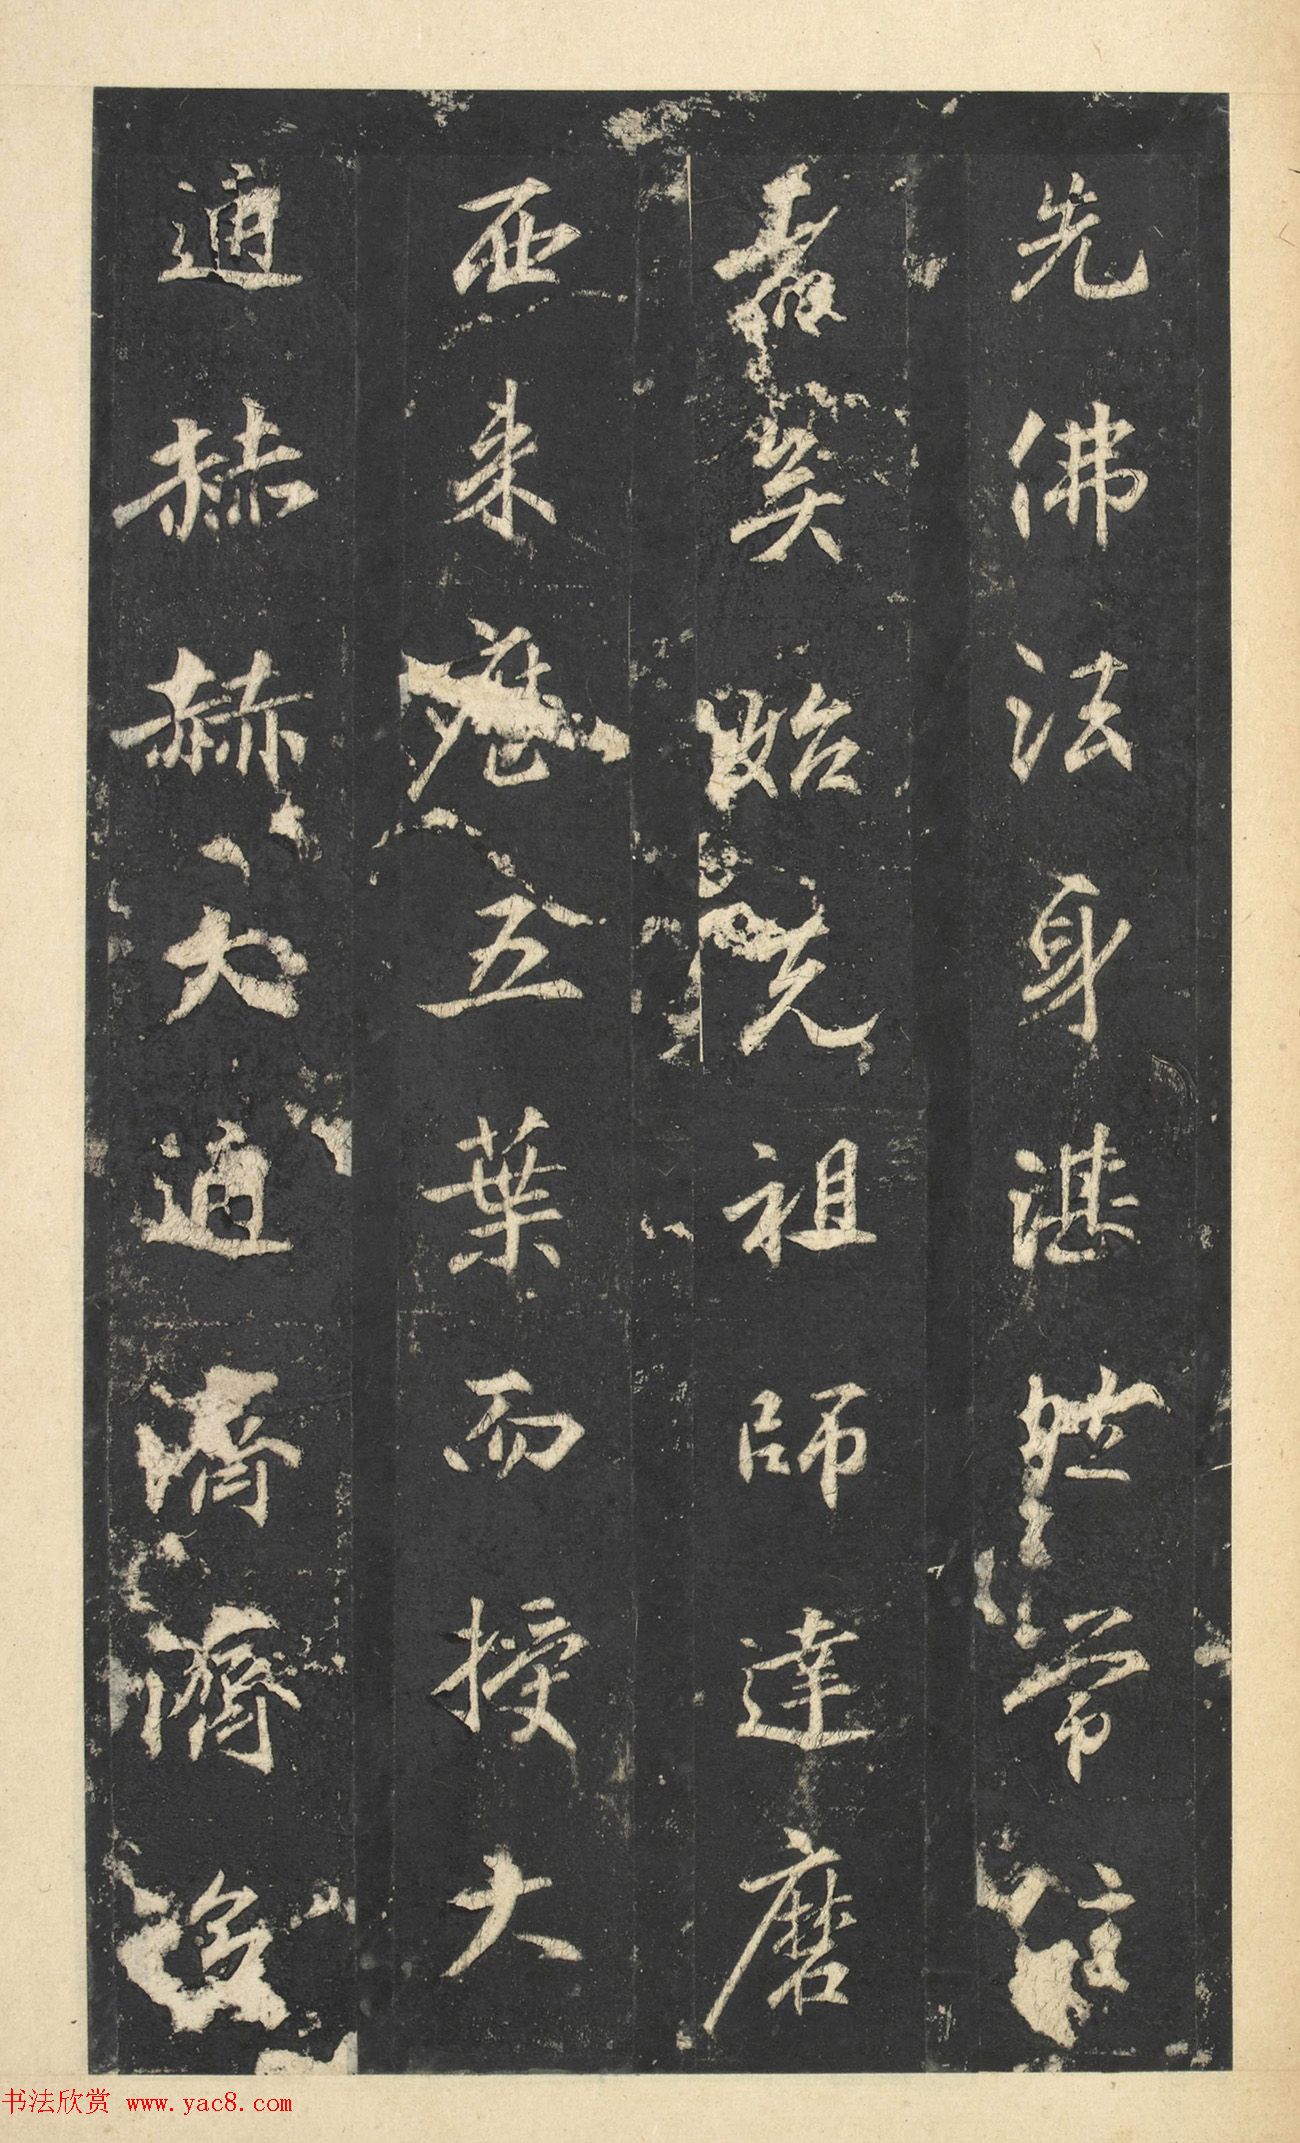 先佛法身湛然常住
者矣始先祖師達磨
西來歷五葉而授大
通赫赫大通濟濟
书法欣赏 www.yac8.com